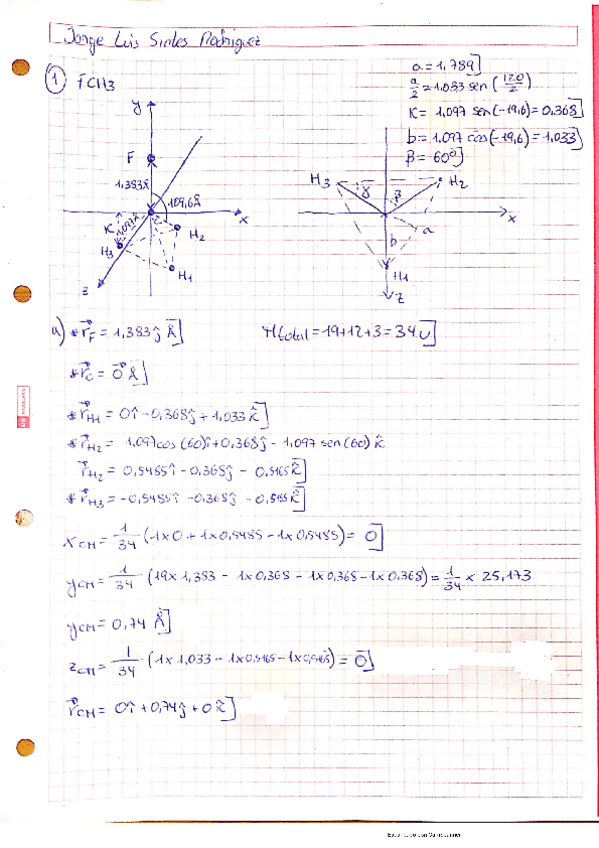 Jorge Luis Sintes Rodríguez
① FCH3
a = 1,789]
a/2 = 1,033 sen (120/2)
K = 1,097 sen(-19,6) = 0,368]
b = 1,097 cos(-19,6) = 1,033]
β = 60°]
y
F
1,383Å
109,6º
x
K
1,097Å
C
H2
H3
H1
z
H3
γ
β
H2
x
a
b
H1
z
a) * r⃗F = 1,383ĵ Å]
Mtotal = 19+12+3 = 34u]
* r⃗C = 0⃗ Å]
* r⃗H1 = 0î - 0,368ĵ + 1,033k̂]
* r⃗H2 = 1,097cos(60)î + 0,368ĵ - 1,097 sen(60) k̂
r⃗H2 = 0,5485î - 0,368ĵ - 0,5165k̂]
* r⃗H3 = -0,5485î - 0,368ĵ - 0,5165k̂]
xCM = 1/34 (1x0 + 1x0,5485 - 1x0,5485) = 0]
yCM = 1/34 (19x1,383 - 1x0,368 - 1x0,368 - 1x0,368) = 1/34 x 25,173
yCM = 0,74 Å]
zCM = 1/34 (1x1,033 - 1x0,5165 - 1x0,5165) = 0]
r⃗CM = 0î + 0,74ĵ + 0k̂]